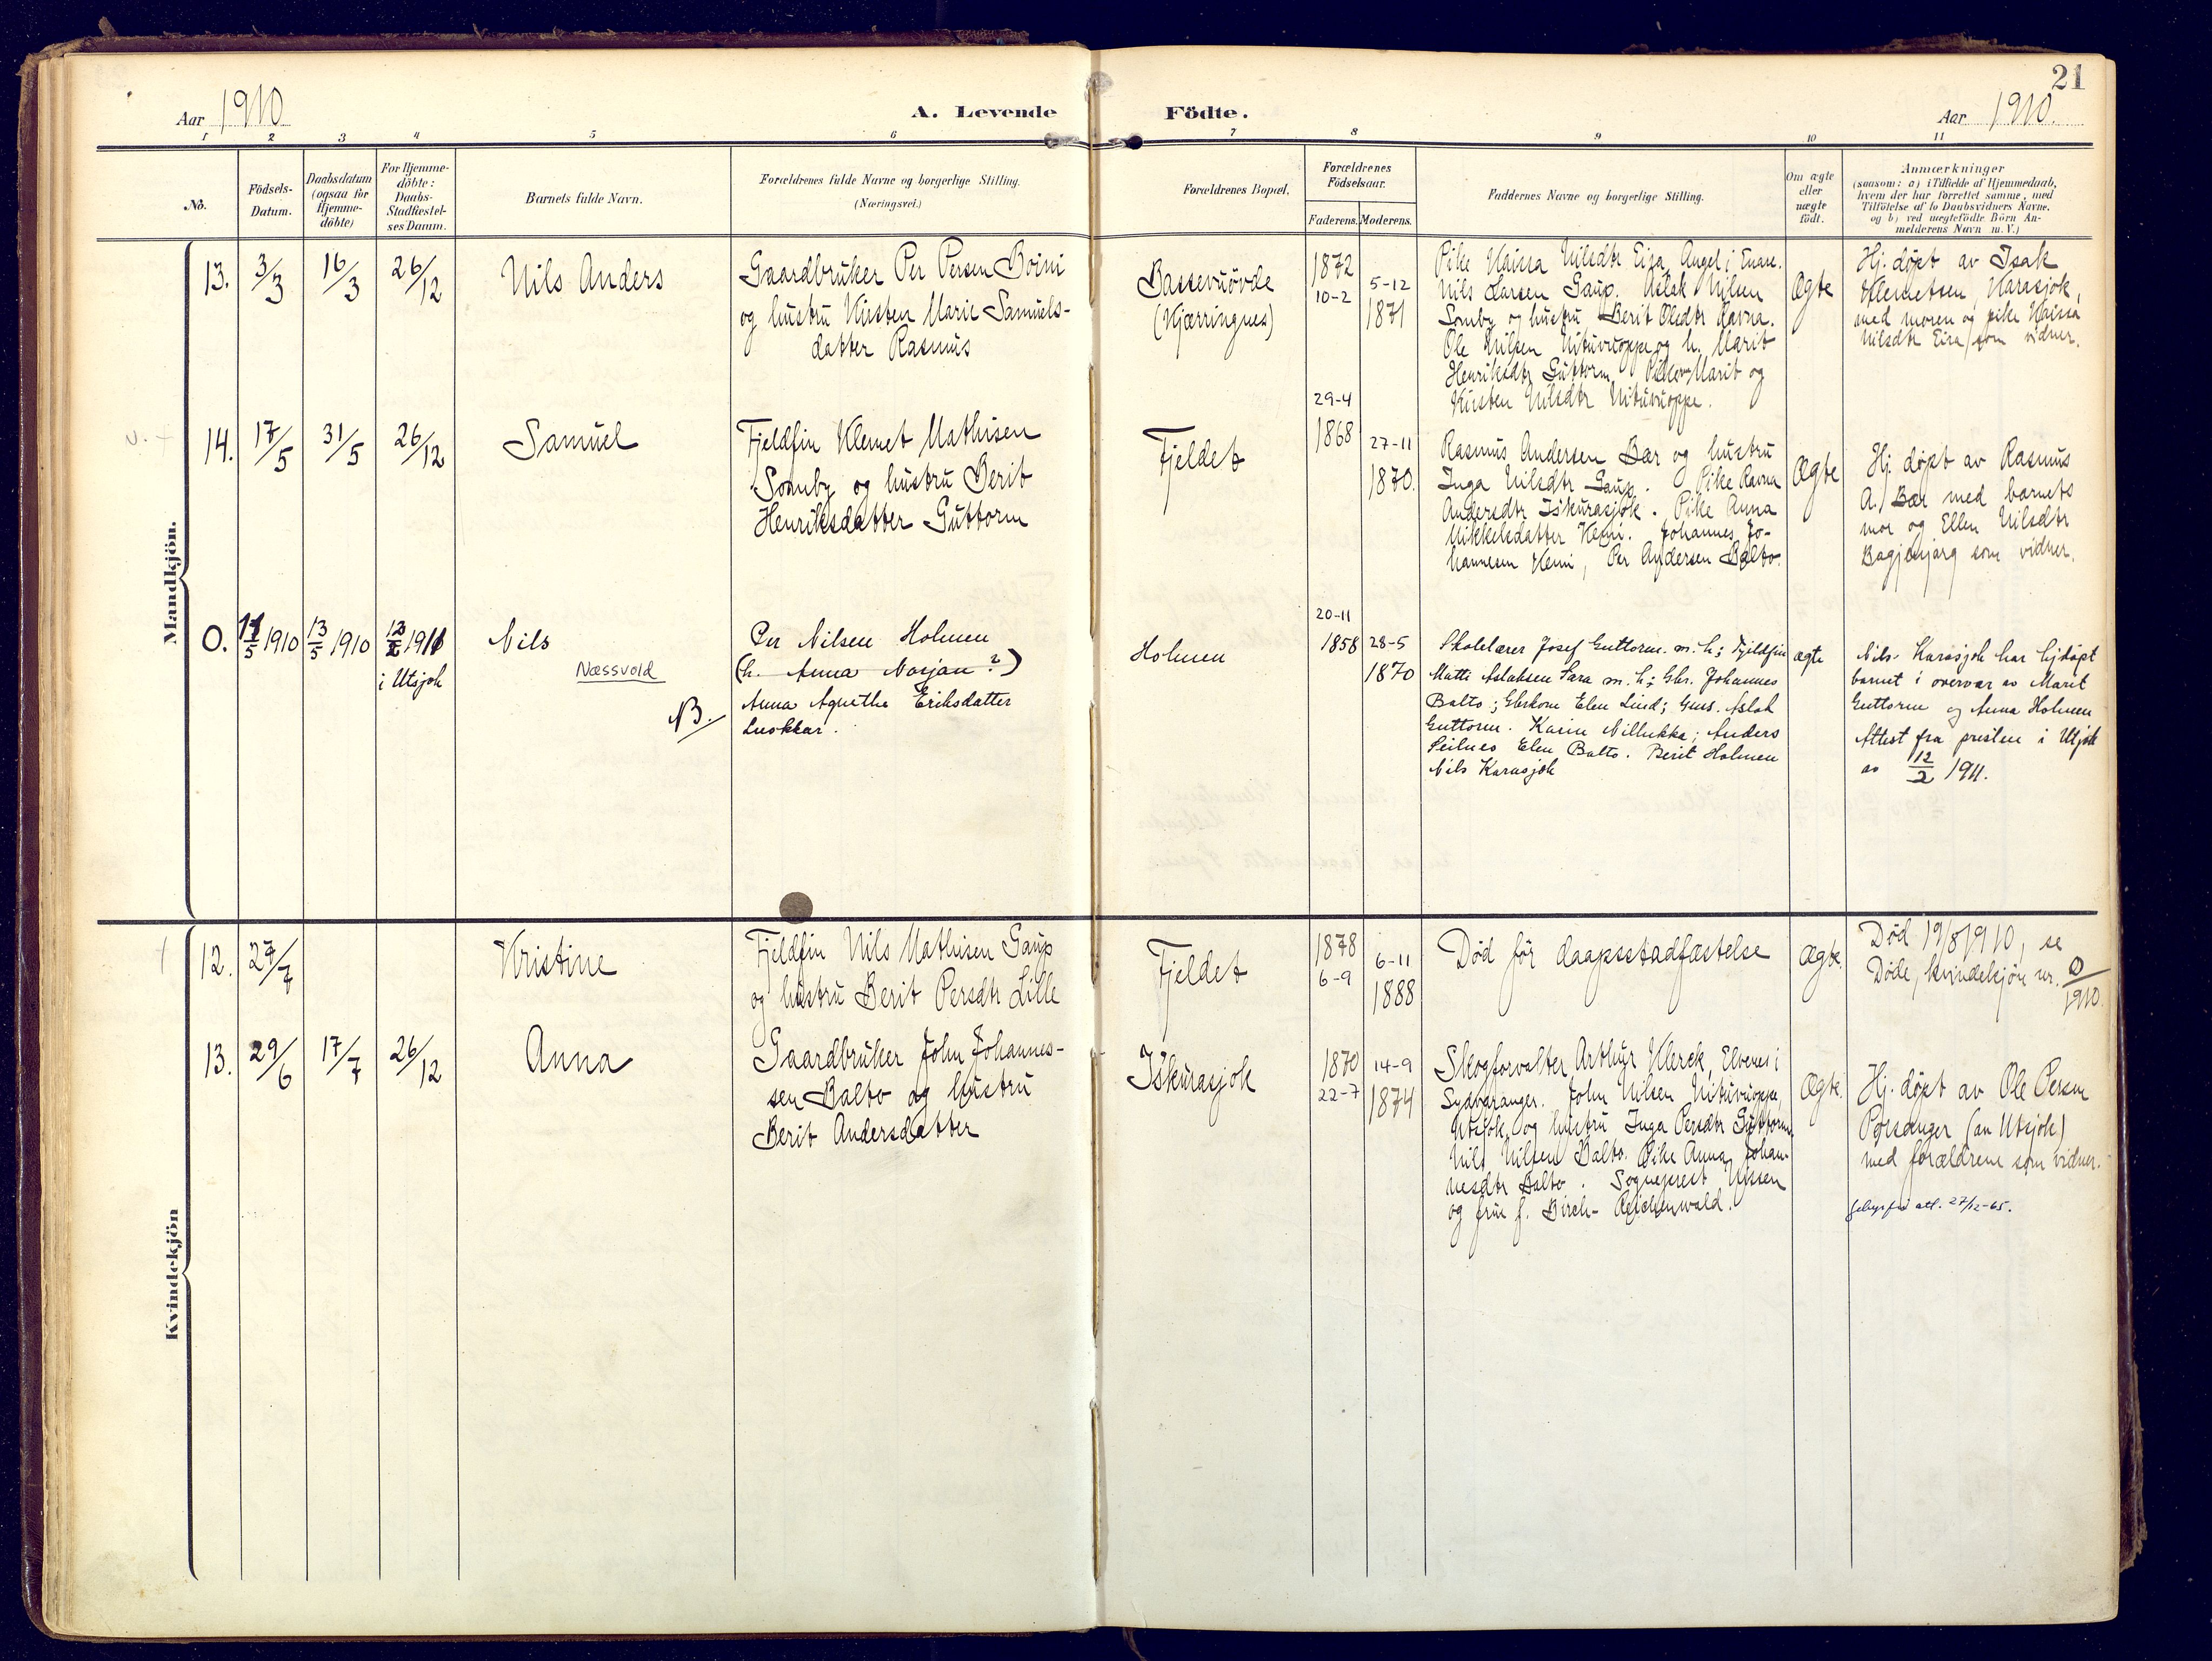 21
Aar 1910
A. Levende Födte.
Aar 1910.
1 2 3 4 5 6 7 8 9 10 11
No.
Födsels-
Datum.
Daabsdatum
(ogsaa for
Hjemme-
döbte)
For Hjemme-
döbte:
Daabs-
Stadfæstel-
ses Datum.
Barnets fulde Navn.
Forældrenes fulde Navne og borgerlige Stilling.
(Næringsvei.)
Forældrenes Bopæl.
Forældrenes
Födselsaar.
Faderens. Moderens.
Faddernes Navne og borgerlige Stilling.
Om ægte
eller
uægte
födt.
Anmærkninger
(saasom: a) i Tilfælde af Hjemmedaab,
hvem der har forrettet samme, med
Tilföielse af to Daabsvidners Navne.
og b) ved uægtefödte Börn An-
melderens Navn m. V.)
Mandkjön.
13. 3/3 16/3 26/12
Nils Anders
Gaardbruker Per Persen Boini
og hustru Kirsten Marie Samuels-
datter Rasmus
Bassevuovde
(Kjærringnes)
1872
10-2
5-12
1871
Pike Kaissa Nilsdtr Eira, Angel i Enare.
Nils Larsen Gaup. Aslak Nilsen
Somby og hustru Berit Olsdtr Ravna.
Ole Nilsen Nituvuoppe og h. Marit
Henriksdtr Guttorm. Pikene Marit og
Kirsten Nilsdtr Nituvuoppe.
Ægte
Hj. døpt av Isak
Klemetsen, Karasjok,
med moren og pike Kaissa
Nilsdtr Eira som vidner.
14. 17/5 31/5 26/12
Samuel
Fjeldfin Klemet Mathisen
Somby og hustru Berit
Henriksdatter Guttorm
Fjeldet
29-4
1868
27-11
1870.
Rasmus Andersen Bær og hustru
Inga Nilsdtr Gaup. Pike Ravna
Andersdtr Iskurasjok. Pike Anna
Mikkelsdatter Kemi. Johannes Jo-
hannesen Kemi, Per Andersen Balto.
Ægte
Hj. døpt av Rasmus
A. Bær med barnets
mor og Ellen Nilsdtr
Bagjenjarg som vidner.
0. 11/5 1910 13/5 1910 12/2 1911
i Utsjok
Nils
Næssvold
NB.
Per Nilsen Holmen
(h. Anna Norjan?)
Anna Agnethe Eriksdatter
Luokkar.
Holmen
20-11
1858
28-5
1870
Skolelærer Josef Guttorm m. h; Fjeldfin
Matti Aslaksen Sara m. h; Gbr. Johannes
Balto; Gbrkone Elen Lind; Gms. Aslak
Guttorm. Karin Nillukka; Anders
Seilnes Elen Balto. Berit Holmen
Nils Karasjok
ægte
Nils Karasjok har hjdøpt
barnet i overvær av Marit
Guttorm og Anna Holmen
Attest fra presten i Utsjok
av 12/2 1911.
Kvindekjön
12. 27/7
Kristine
Fjeldfin Nils Mathisen Gaup
og hustru Berit Persdtr Lille
Fjeldet
1878
6-9
6-11
1888
Død før daapsstadfæstelse
Ægte.
Død 19/8 1910, se
Døde, kvindekjøn nr. 0/1910.
13. 29/6 17/7 26/12
Anna
Gaardbruker John Johannes-
sen Balto og hustru
Berit Andersdatter
Iskurasjok
1870
22-7
14-9
1874
Skogforvalter Arthur Klerck, Elvenes i
Sydvaranger. John Nilsen Nituvuoppe,
Utsjok, og hustru Inga Persdtr Guttorm.
Nils Nilsen Balto. Pike Anna Johan-
nesdtr Balto. Sogneprest Nissen
og frue f. Birch-Reichenwald.
Ægte.
Hj. døpt av Ole Persen
Porsanger (an Utsjok)
med forældrene som vidner.
Gebyrfri att. 27/12-65.